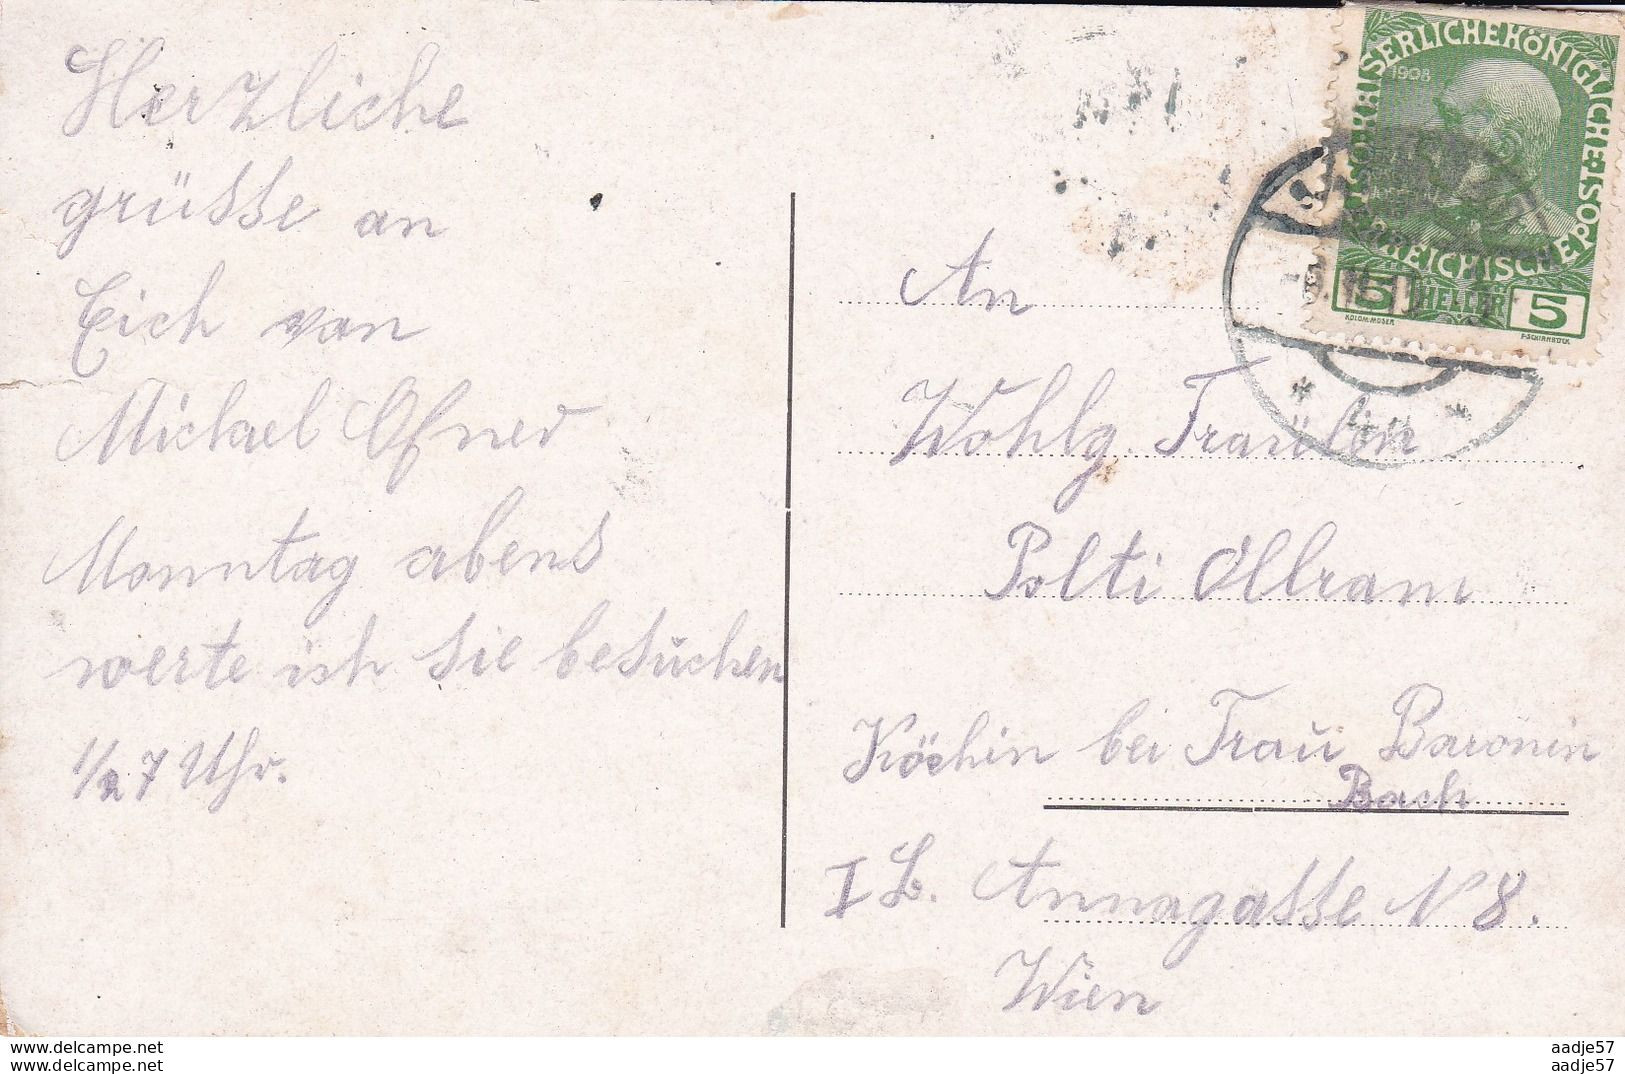 Herzliche
grüsse an
Eich von
Michael Ofner
Monntag abens
werte ich sie besuchen
1/2 7 Uhr.
1908
KAISERLICHE KÖNIGLICHE
ÖSTERREICHISCHE POST
5 HELLER 5
KOLOM·MOSER
F·SCHIRNBÖCK
An
Wohlg. Fraulen
Polti Ollram
Köchin bei Frau Baronin
Bach
I B. Annagasse N 8.
Wien
www.delcampe.net
www.delcampe.net
aadje57
aadje57